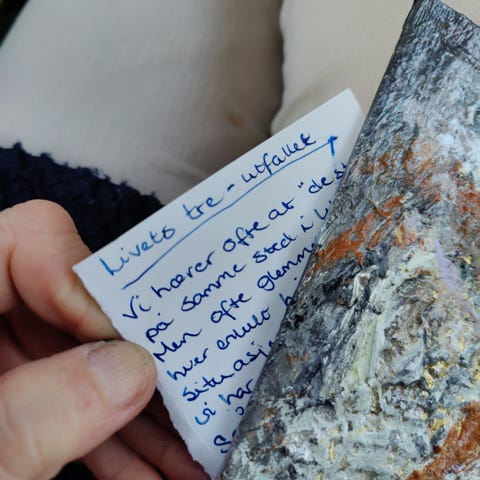 Livets tre - utfallet
Vi hører ofte at "de st
på samme sted i
Men ofte glemme
hver enkelt
situasj
vi har